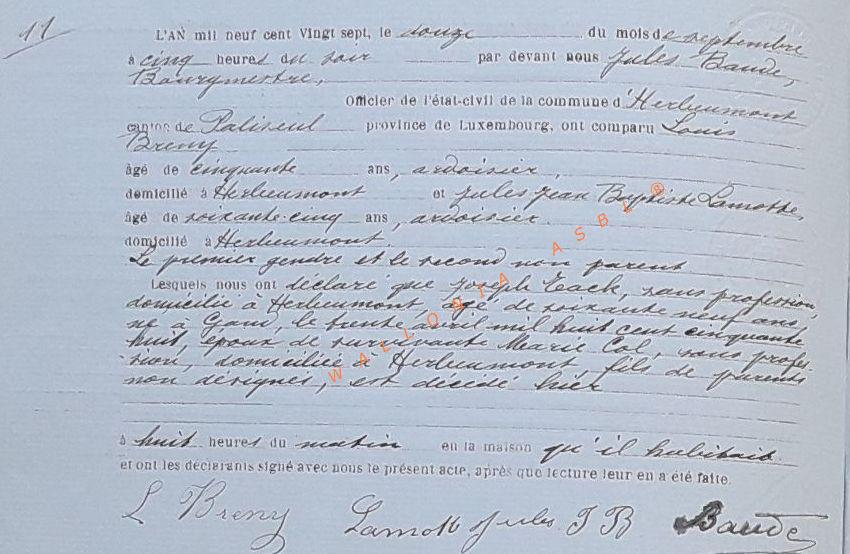 11
L'AN mil neuf cent Vingt sept, le douze du mois de septembre
à cinq heures du soir par devant nous Jules Baude,
Bourgmestre,
Officier de l'état-civil de la commune d'Herbeumont
canton de Paliseul province de Luxembourg, ont comparu Louis
Breny
âgé de cinquante ans, ardoisier,
domicilié à Herbeumont et Jules Jean Baptiste Lamotte,
âgé de soixante-cinq ans, ardoisier.
domicilié à Herbeumont.
Le premier gendre et le second non parent
Lesquels nous ont déclaré que Joseph, sans profession,
domicilié à Herbeumont, âgé de soixante neuf ans,
né à Gand, le trente avril mil huit cent cinquante
huit, époux de survivante Marie Col, sans profes-
sion, domiciliée à Herbeumont, fils de parents
non désignés, est décédé hier
à huit heures du matin en la maison qu'il habitait
et ont les déclarants signé avec nous le présent acte, après que lecture leur en a été faite.
L Breny Lamott Jules J B Baude
WALLONIA ASBL ®